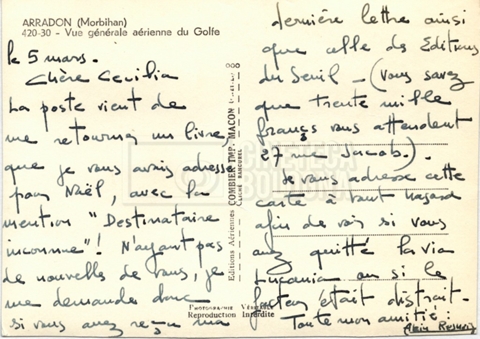 ARRADON (Morbihan)
420-30 - Vue générale aérienne du Golfe
le 5 mars.
Chère Cecilia
La poste vient de
me retourner un livre,
que je vous avais adressé
pour Noël, avec la
mention "Destinataire
inconnue"! N'ayant pas
de nouvelles de vous, je
me demande donc
si vous avez reçu ma
Editions Aériennes COMBIER IMP. MACON
Reproduction Interdite
dernière lettre ainsi
que celle des Editions
du Seuil - (Vous savez
que trente mille
francs vous attendent
27 rue Jacob).
Je vous adresse cette
carte à tout hasard
afin de voir si vous
avez quitté la via
Lusania ou si le
facteur était distrait.
Toute mon amitié :
Alain